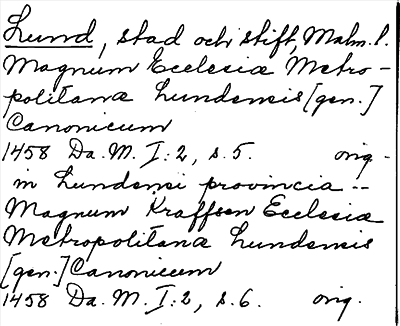 Lund, stad och stift, Malm. l.
Magnum Ecclesiæ Metro-
politanæ Lundensis [gen.]
Canonicum
1458 Da. M. I: 2, s. 5. orig.
in Lundensi provincia --
Magnum Kraffsen Ecclesiæ
Metropolitanæ Lundensis
[gen.] Canonicum
1458 Da. M. I: 2, s. 6. orig.